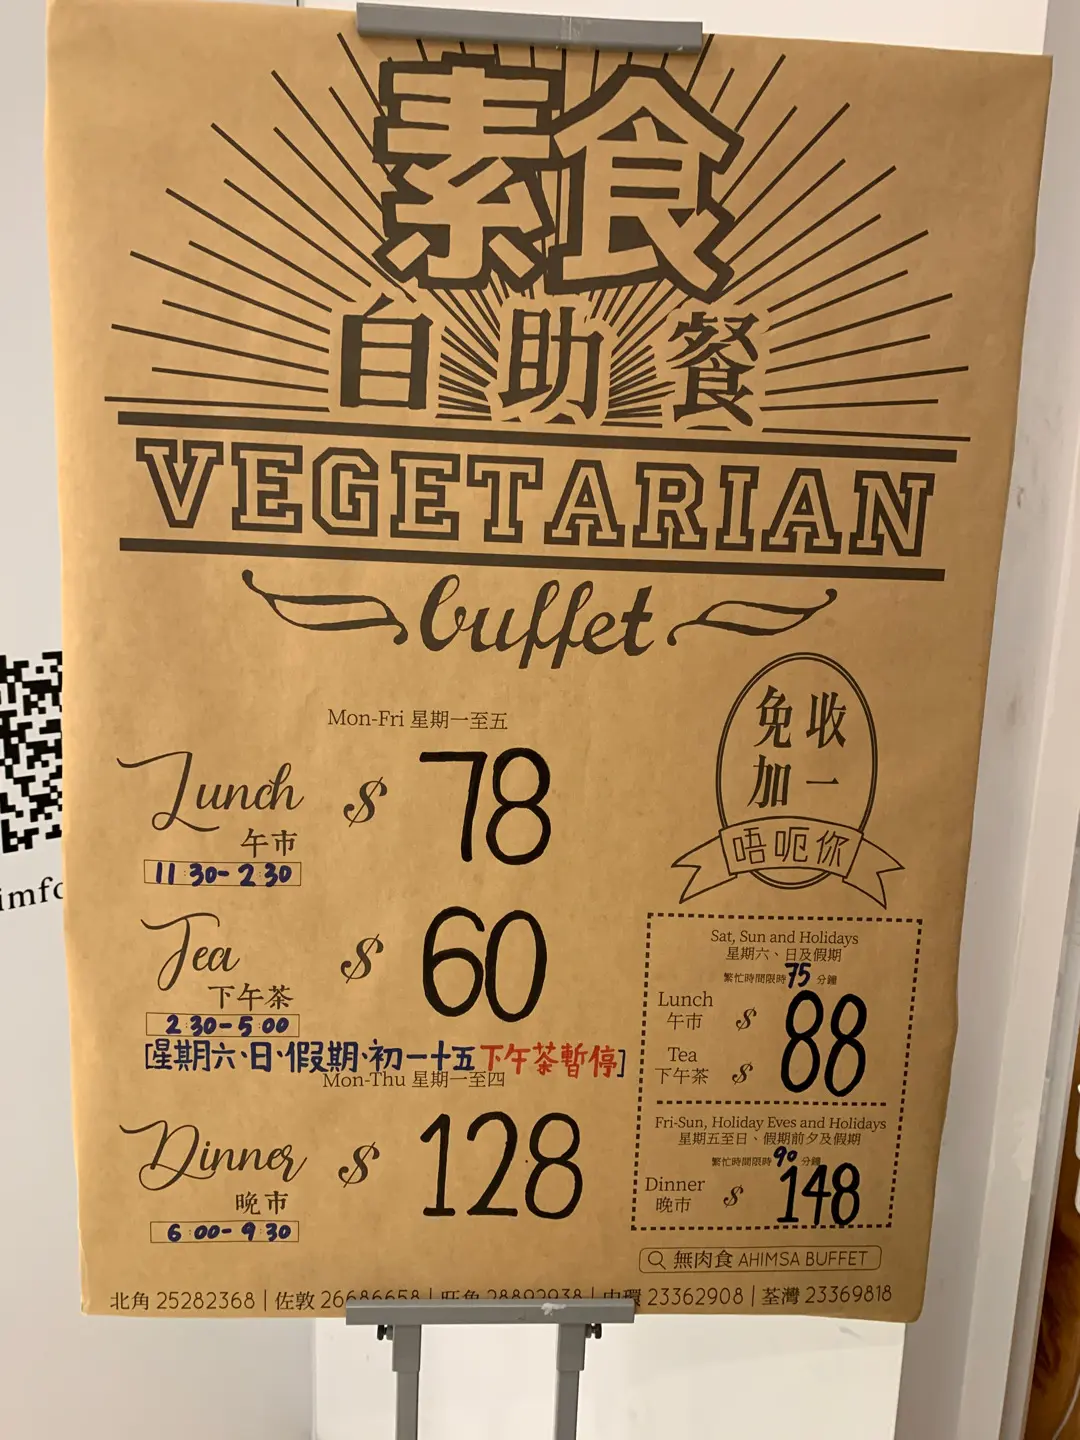 素食
自助餐
VEGETARIAN
buffet
免收
加一
唔呃你
Mon-Fri 星期一至五
Lunch $ 78
午市
11:30-2:30
Tea $ 60
下午茶
2:30-5:00
[星期六、日、假期、初一十五下午茶暫停]
Mon-Thu 星期一至四
Dinner $ 128
晚市
6:00-9:30
Sat, Sun and Holidays
星期六、日及假期
繁忙時間限時75分鐘
Lunch
午市 $
88
Tea
下午茶 $
Fri-Sun, Holiday Eves and Holidays
星期五至日、假期前夕及假期
繁忙時間限時90分鐘
Dinner
晚市 $ 148
無肉食 AHIMSA BUFFET
北角 25282368 | 佐敦 26686658 | 旺角 28892938 | 中環 23362908 | 荃灣 23369818